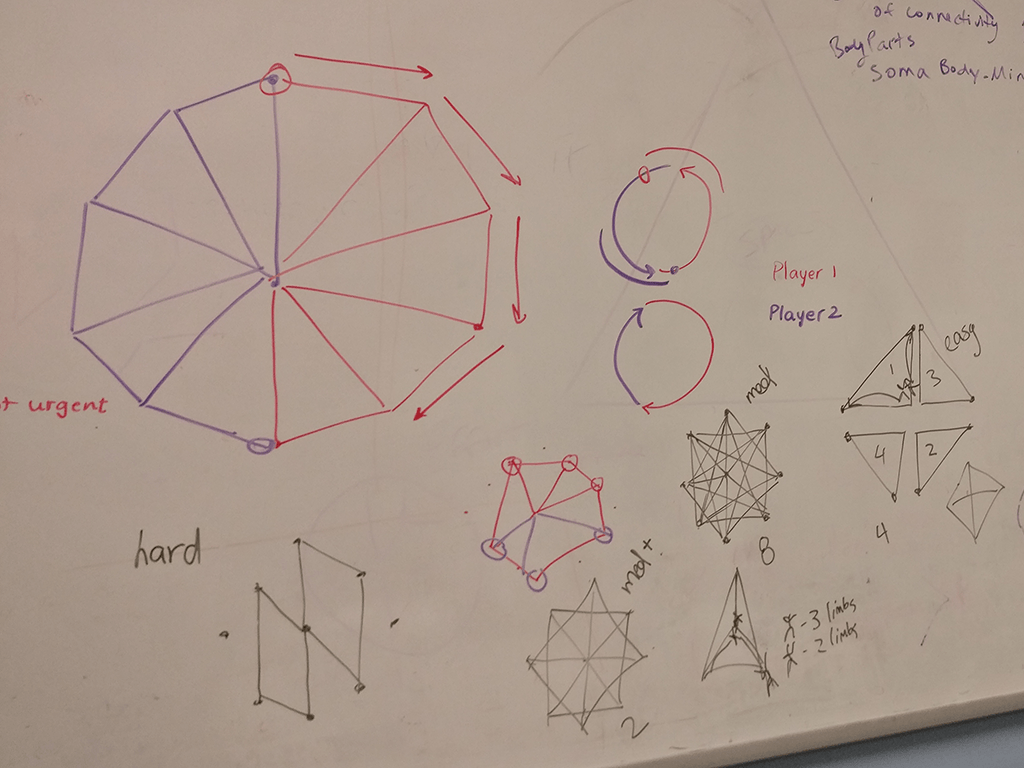 of connectivity
Body Parts
Soma Body-Min
Player 1
Player 2
t urgent
easy
1
3
med
4
2
8
4
hard
med +
2
- 3 limbs
- 2 limbs